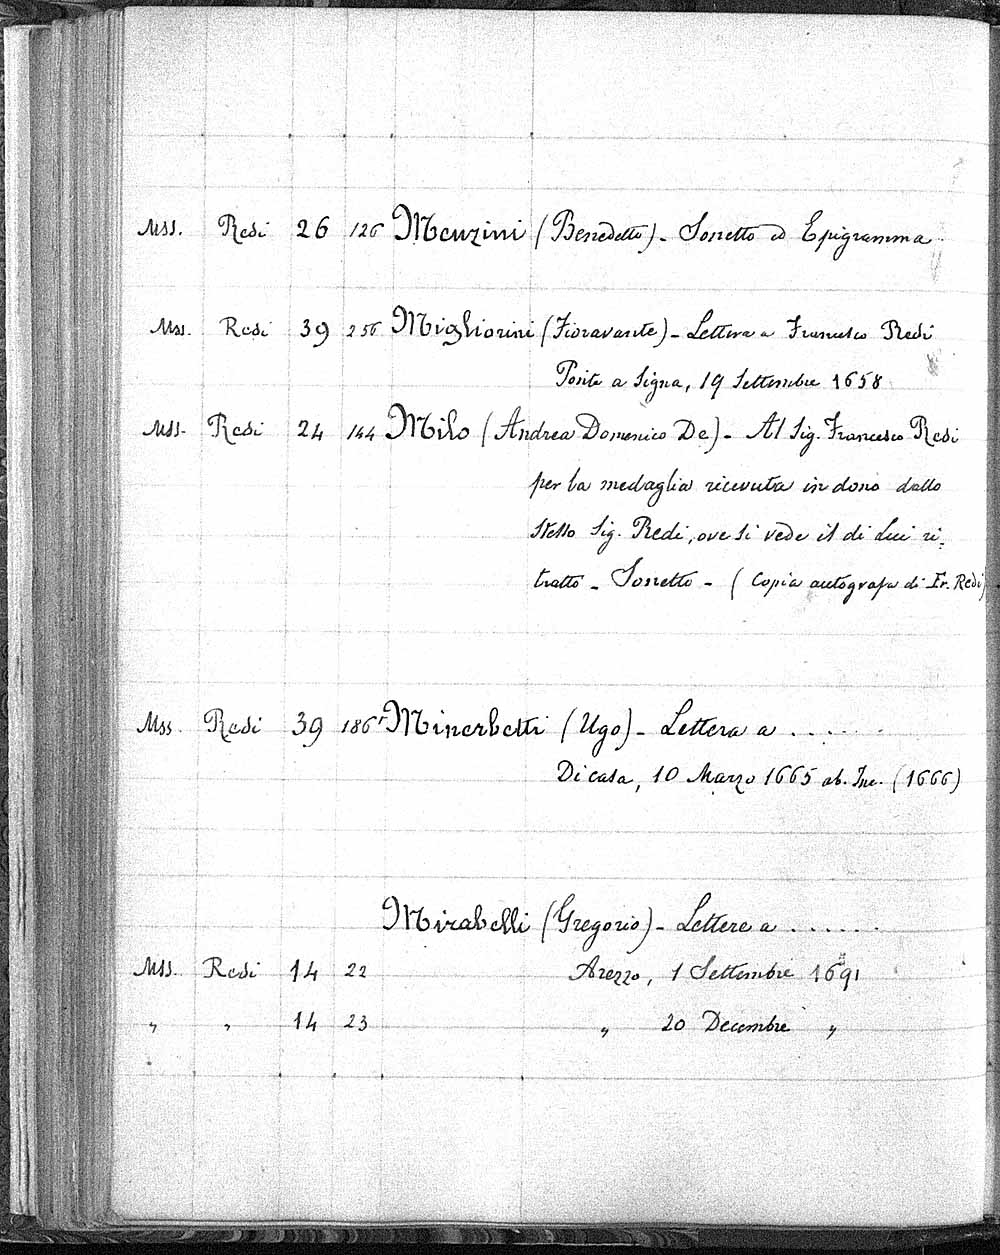 Mss. Redi 26 126 Menzini (Benedetto) - Sonetto ed Epigramma
Mss. Redi 39 256 Migliorini (Fioravante) - Lettera a Francesco Redi
Ponte a Signa, 19 Settembre 1658
Mss. Redi 24 144 Milo (Andrea Domenico De) - Al Sig. Francesco Redi
per la medaglia ricevuta in dono dallo
stesso Sig. Redi, ove si vede il di lui ri-
tratto - Sonetto - (Copia autografa di Fr. Redi)
Mss. Redi 39 186r Minerbetti (Ugo) - Lettera a . . . . . .
Di casa, 10 Marzo 1665 ab. Inc. (1666)
Mirabelli (Gregorio) - Lettere a . . . . . .
Mss. Redi 14 22 Arezzo, 1 Settembre 1691
" " 14 23 " 20 Decembre "